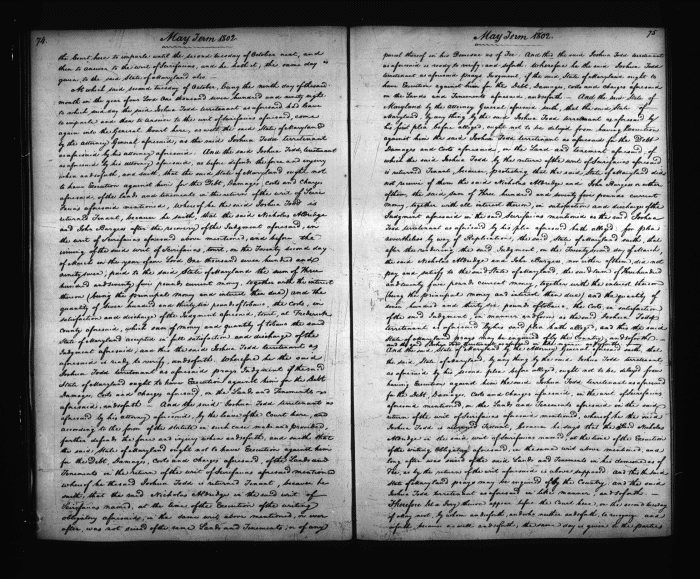 74.
May Term 1802
the Court here to imparle until the second tuesday of October next, and
then to answer to the writ of Scirifacias, and he hath it, the same day is
given to the said State of Maryland also
At which said second tuesday of October, being the day of the said
month in the year of our Lord One thousand seven hundred and ninety eight
to which said day the said Joshua Todd terretenant as aforesaid had leave
to imparle and then to answer to the writ of scirifacias aforesaid, come
again into the General Court here, as well the said State of Maryland
by the attorney General aforesaid, as the said Joshua Todd terretenant
as aforesaid by his attorney aforesaid. And the said Joshua Todd, terretenant
as aforesaid by his attorney aforesaid, as before defends the force and injury
when andsoforth, and saith, that the said State of Maryland ought not
to have Execution against him for the Debt, Damages, Costs and Charges
aforesaid, of the lands and tenements in the return of the writ of Scire
Facias aforesaid mentioned, whereof he the said Joshua Todd is
returned Tenant, because he saith, that the said Nicholas
and John Burgess after the recovery of the Judgment aforesaid, in
the writ of Scirifacias aforesaid above mentioned, and before the
issuing of the said writ of Scirifacias, towit, on the Twenty second day
of March in the year of our Lord One thousand seven hundred and
ninety seven, paid to the said State of Maryland the sum of Three
hundred and seventy four pounds current money, together with the interest
thereon (being the principal money and interest then due) and the
quantity of seven hundred and thirty six pounds of tobacco, the Costs, in
satisfaction and discharge of the Judgment aforesaid, towit, at Frederick
County aforesaid, which sum of money and quantity of tobacco the said
State of Maryland accepted in full satisfaction and discharge of the
Judgment aforesaid; and this the said Joshua Todd terretenant as
aforesaid is ready to verify, andsoforth. Wherefore he the said
Joshua Todd terretenant as aforesaid prays Judgment if the said
State of Maryland ought to have Execution against him for the Debt
Damages, Costs and Charges aforesaid, on the Lands and Tenements
aforesaid, andsoforth. And the said Joshua Todd terretenant as
aforesaid by his attorney aforesaid, by the leave of the Court here, and
according to the form of the statute in such case made and provided,
further defends the force and injury when andsoforth, and saith that
the said State of Maryland ought not to have Execution against him
for the Debt, Damages, Costs and Charges aforesaid, of the Lands and
Tenements in the return of the writ of Scirifacias aforesaid mentioned
whereof he the said Joshua Todd is returned Tenant, because he
saith, that the said Nicholas in the said writ of
Scirifacias named, at the time of the Execution of the writing
obligatory aforesaid, in the same writ above mentioned, or ever
after, was not seized of the same Lands and Tenements, or of any
75
May Term 1802.
parcel thereof in his Demesne as of Fee. And this the said Joshua Todd terretenant
as aforesaid is ready to verify, andsoforth. Wherefore he the said Joshua Todd
terretenant as aforesaid prays Judgment, if the said State of Maryland ought to
have Execution against him for the Debt, Damages, costs and charges aforesaid
on the Lands and Tenements aforesaid, andsoforth. And the said State of
Maryland by the attorney General aforesaid saith, that the said State of
Maryland, by any thing by the said Joshua Todd terretenant as aforesaid by
his first plea before alledged, ought not to be delayed from having Execution
against him the said Joshua Todd terretenant as aforesaid for the Debt
Damages and Costs aforesaid, on the Lands and Tenements aforesaid, of
which the said Joshua Todd by the return of the writ of Scirifacias aforesaid
is returned Tenant, because, protesting that the said State of Maryland did
not receive of them the said Nicholas and John Burgess or either
of them, the said sum of Three hundred and seventy four pounds current
money, together with all interest thereon, in satisfaction and discharge of the
Judgment aforesaid in the said Scirifacias mentioned as the said Joshua
Todd terretenant as aforesaid by his plea aforesaid hath alledged, for plea
nevertheless by way of Replication, the said State of Maryland saith, that
after the recovering the said Judgment, on the twenty second day of March,
the said Nicholas and John Burgess, nor either of them, did not
pay and satisfy to the said State of Maryland, the said sum of three hundred
and seventy four pounds current money, together with the interest thereon
(being the principal money and interest then due) and the quantity of
seven hundred and thirty six pounds of tobacco, the Costs, in satisfaction
of the said Judgment, in manner and form as the said Joshua Todd
terretenant as aforesaid by his said plea hath alledged, and this the said
State of Maryland prays may be enquired of by the Country, andsoforth.
And the said State of Maryland by the attorney General aforesaid saith, that
the said State of Maryland by any thing by the said Joshua Todd terretenant,
as aforesaid by his second plea before alledged, ought not to be delayed from
having Execution against him the said Joshua Todd terretenant as aforesaid
for the Debt, Damages, Costs and Charges aforesaid, in the writ of Scirifacias
aforesaid mentioned, on the Lands and Tenements aforesaid in the said
return of the writ of Scirifacias aforesaid mentioned, whereof he the said
Joshua Todd is returned Tenant, because he says that the said Nicholas
in the said writ of Scirifacias named, at the time of the Execution
of the writing Obligatory aforesaid, in the same writ above mentioned, and
ever after was seized of the said Lands and Tenements in his Demesne as of
Fee, as by the return of the writ aforesaid is above supposed; and this the said
State of Maryland prays may be enquired of by the Country, and the said
Joshua Todd terretenant as aforesaid in like manner, andsoforth.
Therefore let a Jury thereon appear before the Court here, on the second tuesday
of May next, by whom andsoforth, and who neither andsoforth, to recognize and
soforth, because as well andsoforth; the same day is given to the parties